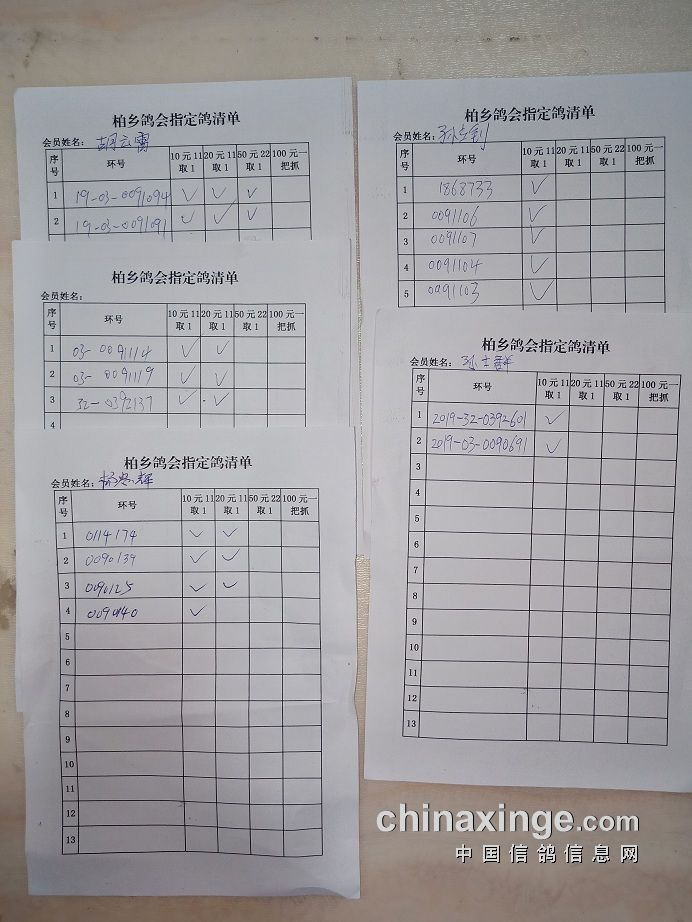 柏乡鸽会指定鸽清单
会员姓名：胡云雷
序号 环号 10元11取1 20元11取1 50元22取1 100元一把抓
1 19-03-0091094 ✓ ✓ ✓
2 19-03-0091091 ✓ ✓ ✓
柏乡鸽会指定鸽清单
会员姓名：
序号 环号 10元11取1 20元11取1 50元22取1 100元一把抓
1 03-0091114 ✓ ✓
2 03-0091119 ✓ ✓
3 32-0392137 ✓ ✓
4
柏乡鸽会指定鸽清单
会员姓名：杨辉
序号 环号 10元11取1 20元11取1 50元22取1 100元一把抓
1 0114174 ✓ ✓
2 0090139 ✓ ✓
3 0090125 ✓ ✓
4 ✓
5
6
7
8
9
10
11
12
13
柏乡鸽会指定鸽清单
会员姓名：孙立钊
序号 环号 10元11取1 20元11取1 50元22取1 100元一把抓
1 1868733 ✓
2 0091106 ✓
3 0091107 ✓
4 0091104 ✓
5 0091103 ✓
柏乡鸽会指定鸽清单
会员姓名：孙士群
序号 环号 10元11取1 20元11取1 50元22取1 100元一把抓
1 2019-32-0392601 ✓
2 2019-03-0090691 ✓
3
4
5
6
7
8
9
10
11
12
13
chinaxinge.com
中国信鸽信息网